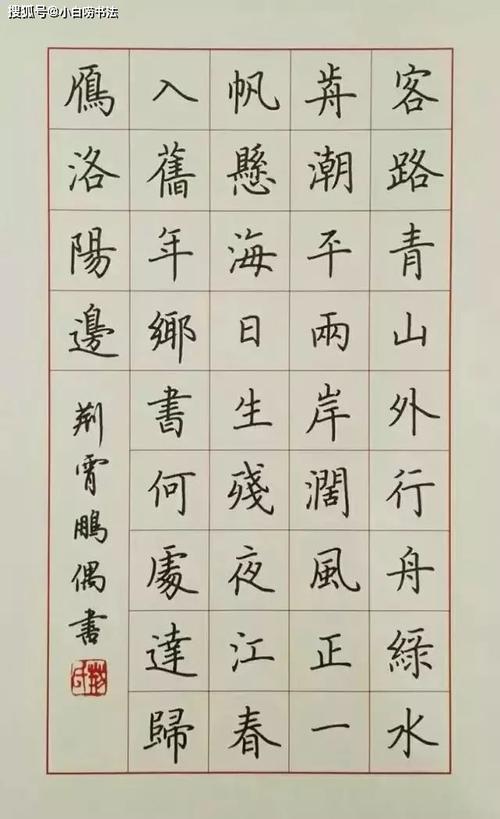 搜狐号@小白唠书法
客路青山外行舟綠水
歬潮平兩岸濶風正一
帆懸海日生殘夜江春
入舊年鄉書何處達歸
鴈洛陽邊
荆霄鵬偶書